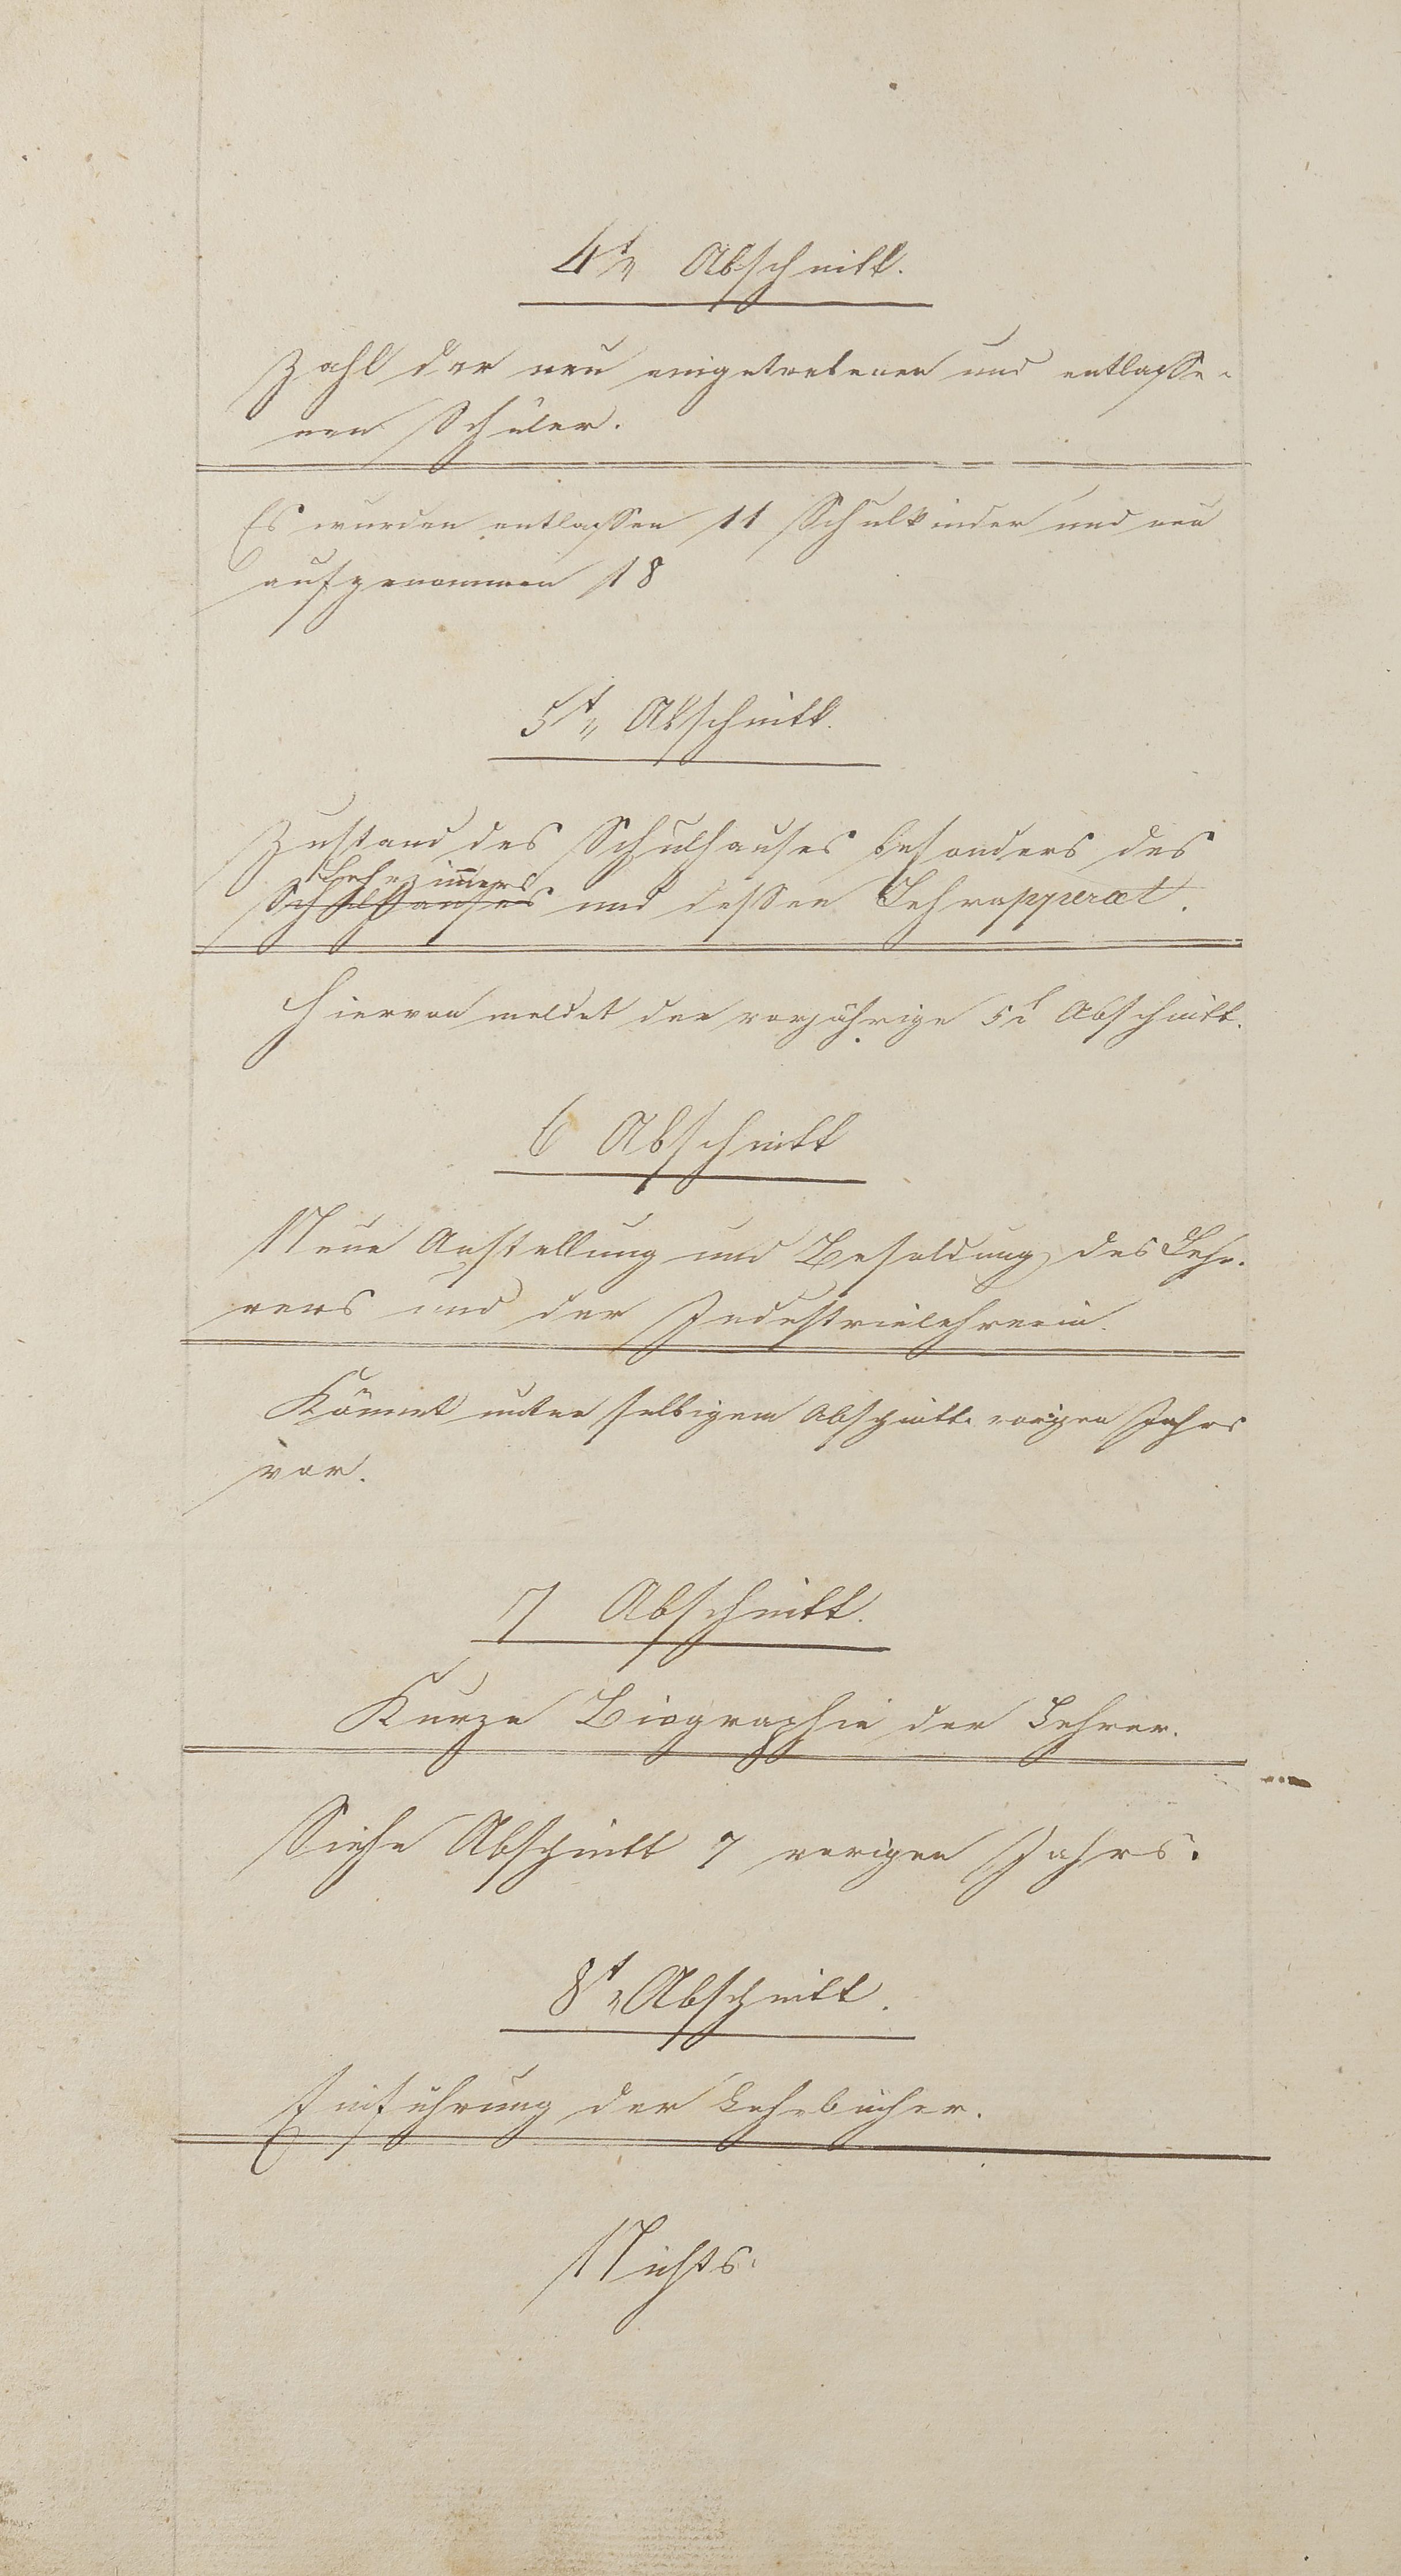 4t„ Abschnitt.
Zahl der neu eingetretenen und entlasse-
nen Schüler.
Es wurden entlassen 11 Schulkinder und neu
aufgenommen 18
5t„ Abschnitt.
Zustand des Schulhauses besonders des
Lehrzimmers
Schulhauses und dessen Lehrapperat.
Hiervon meldet der vorjährige 5t Abschnitt.
6 Abschnitt
Neue Anstellung und Besoldung des Leh-
rers und der Industrielehrerin.
Kömmt unter selbigem Abschnitte vorigen Jahrs
vor.
7 Abschnitt.
Kurze Biographie der Lehrer.
Siehe Abschnitt 7 vorigen Jahrs.
8t„ Abschnitt.
Einführung der Lehrbücher.
Nichts.